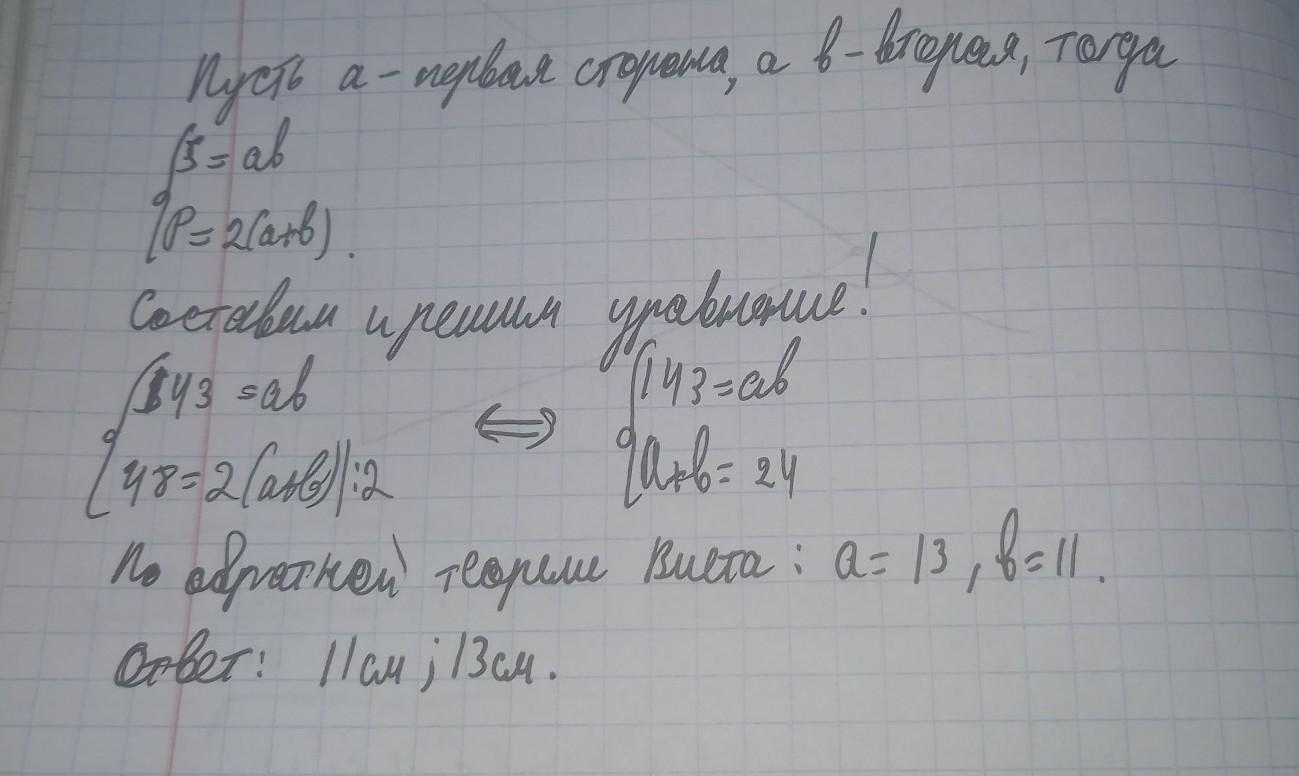 Пусть a - первая сторона, а b - вторая, тогда
{S = ab
{P = 2(a+b).
Составим и решим уравнение!
{143 = ab ⇔ {143 = ab
{48 = 2(a+b)|:2 {a+b = 24
По обратной теореме Виета: a = 13, b = 11.
Ответ: 11см; 13см.